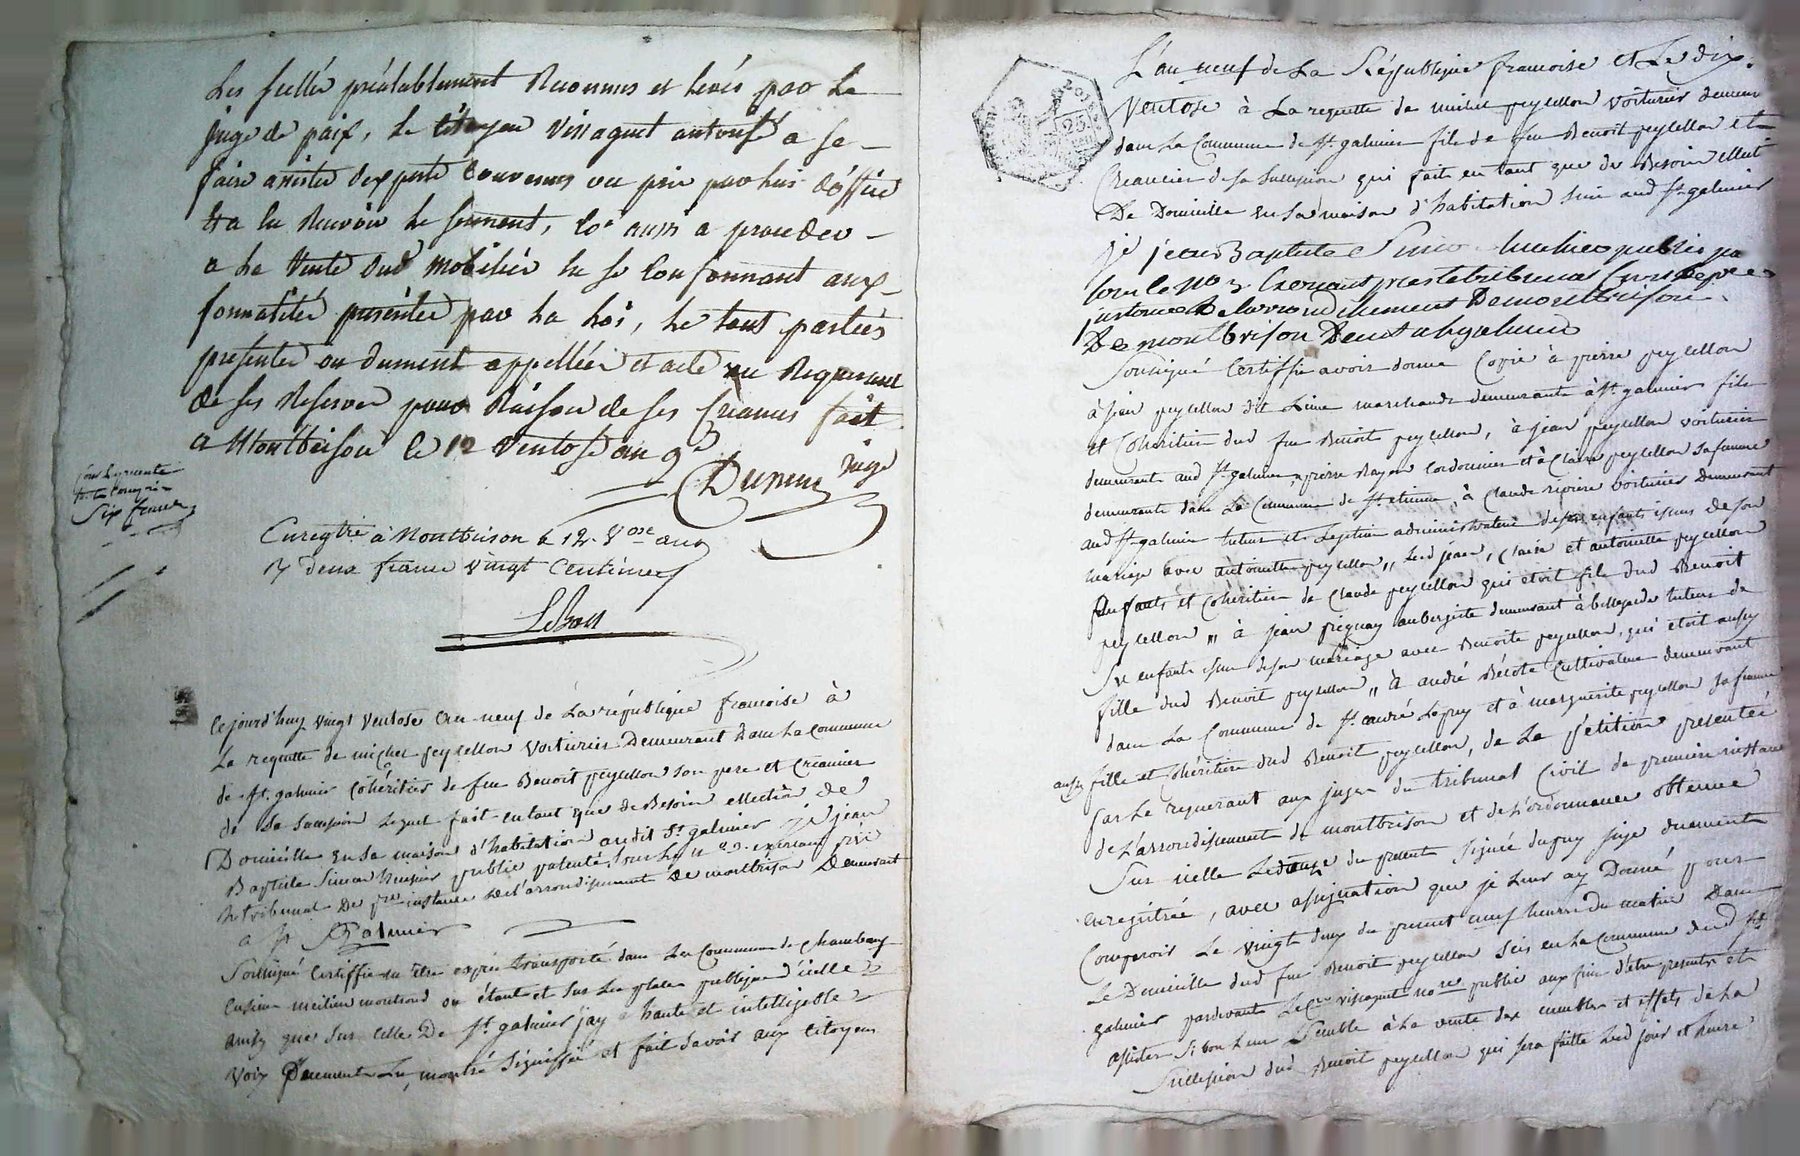 Les scellés préalablement Reconnus et levés par Le
juge de paix, le Citoyen Vissaguet autorisé a se
faire assister d'experts Convenus ou pris par lui d'office
et a En Recevoir le serment, Co.e aussi a proceder
a La Vente dud Mobilier En se Conformant aux
formalités présentées par La Loi, Le tout parties
presentes ou dument appellées et acte au Requerant
de ses Reserves pour Raison de ses Creances fait
a Montbrison le 12 Ventose an 9e
Dupuy juge
Six francs
Enregtré à Montbrison le 12 Vose an 9
deux francs Vingt Centimes
Cejourd'huy vingt Ventose an neuf de La république francoise à
La requette de michel peyssellon Voiturier Demeurant dans La Commune
de St. galmier Cohéritier de feu Benoit peyssellon son pere et Creancier
de Sa Succession Lequel fait en tant que de Besoin ellection de
Domicille en Sa maison d'habitation audit St galmier je jean
Baptiste Simon huissier public patenté, sous Le n° 23 exercant près
Le tribunal De pre instance de L'arrondissement de montbrison Demeurant
a St Galmier
Soussigné Certiffie m'être exprès transporté dans La Commune de Chambeuf
montrond ou étant et sur Les places publiques d'icelle
ainsy que sur celle De St galmier j'ay a haute et intelligible
Voix Duement Lu, montré Signiffié et fait Savoir aux Citoyens
L'an neuf de La République francoise et Le dix
Ventose à La requette de michel peyssellon Voiturier demeur
dans La Commune de St galmier fils de feu Benoit peyssellon et
Creancier de sa Succession qui fait en tant que de Besoin ellecti
De Domicille en Sa maison d'habitation Sise aud St galmier
je jean Baptiste Simon huissier public pa
sous le No 23 Exercant pres le tribunal
instance De larrondissement De montbrison
De montbrison Demt a St galmier
Soussigné Certiffie avoir donné Copie à pierre peyssellon
à jean peyssellon dit Lainé marchands demeurants à St galmier fils
et Cohéritiers dud feu Benoit peyssellon, à jean peyssellon voiturier
demeurant aud St galmier, a pierre Rayon Cordonnier et à Claire peyssellon Sa femme
demeurants dans La Commune de St etienne, à Claude rivoire Voiturier Demeurant
aud St galmier tuteur et Legitime administrateur de ses enfants issus de son
mariage avec antoinette peyssellon, Lesd jean, Claire et antoinette peyssellon
Enfants et Cohéritiers de Claude peyssellon qui etoit fils dud Benoit
peyssellon, à jean aubergiste demeurant à bellegarde tuteur de
Ses enfants issus de son mariage avec Benoite peyssellon, qui etoit aussy
fille dud Benoit peyssellon, à andré Cultivateur demeurant
dans La Commune de St Lepuy et à marguerite peyssellon Sa femme
aussy fille et Cohéritière dud Benoit peyssellon, de La pétition presentée
par Le requerant aux juges du tribunal Civil de premiere instance
de L'arrondissement de montbrison et de L'ordonnance obtenue
Sur icelle Le douze du present Signée dupuy juge duement
enregistrée, avec assignation que je Leur ay Donné pour
Comparoir Le vingt deux du present neuf heures du matin Dans
Le Domicille dud feu Benoit peyssellon Sis en La Commune dud St
galmier pardevant Le Cen vissaguet nore public aux fins d'être presents et
assister Si bon Leur Semble à La vente des meubles et effets de La
Succession dud Benoit peyssellon qui Sera faitte Led jour et heure